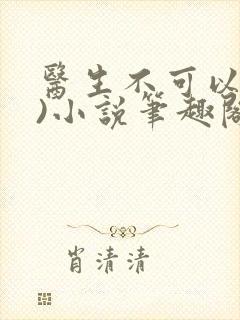 醫生不可以
)小說筆趣閣
肖清清